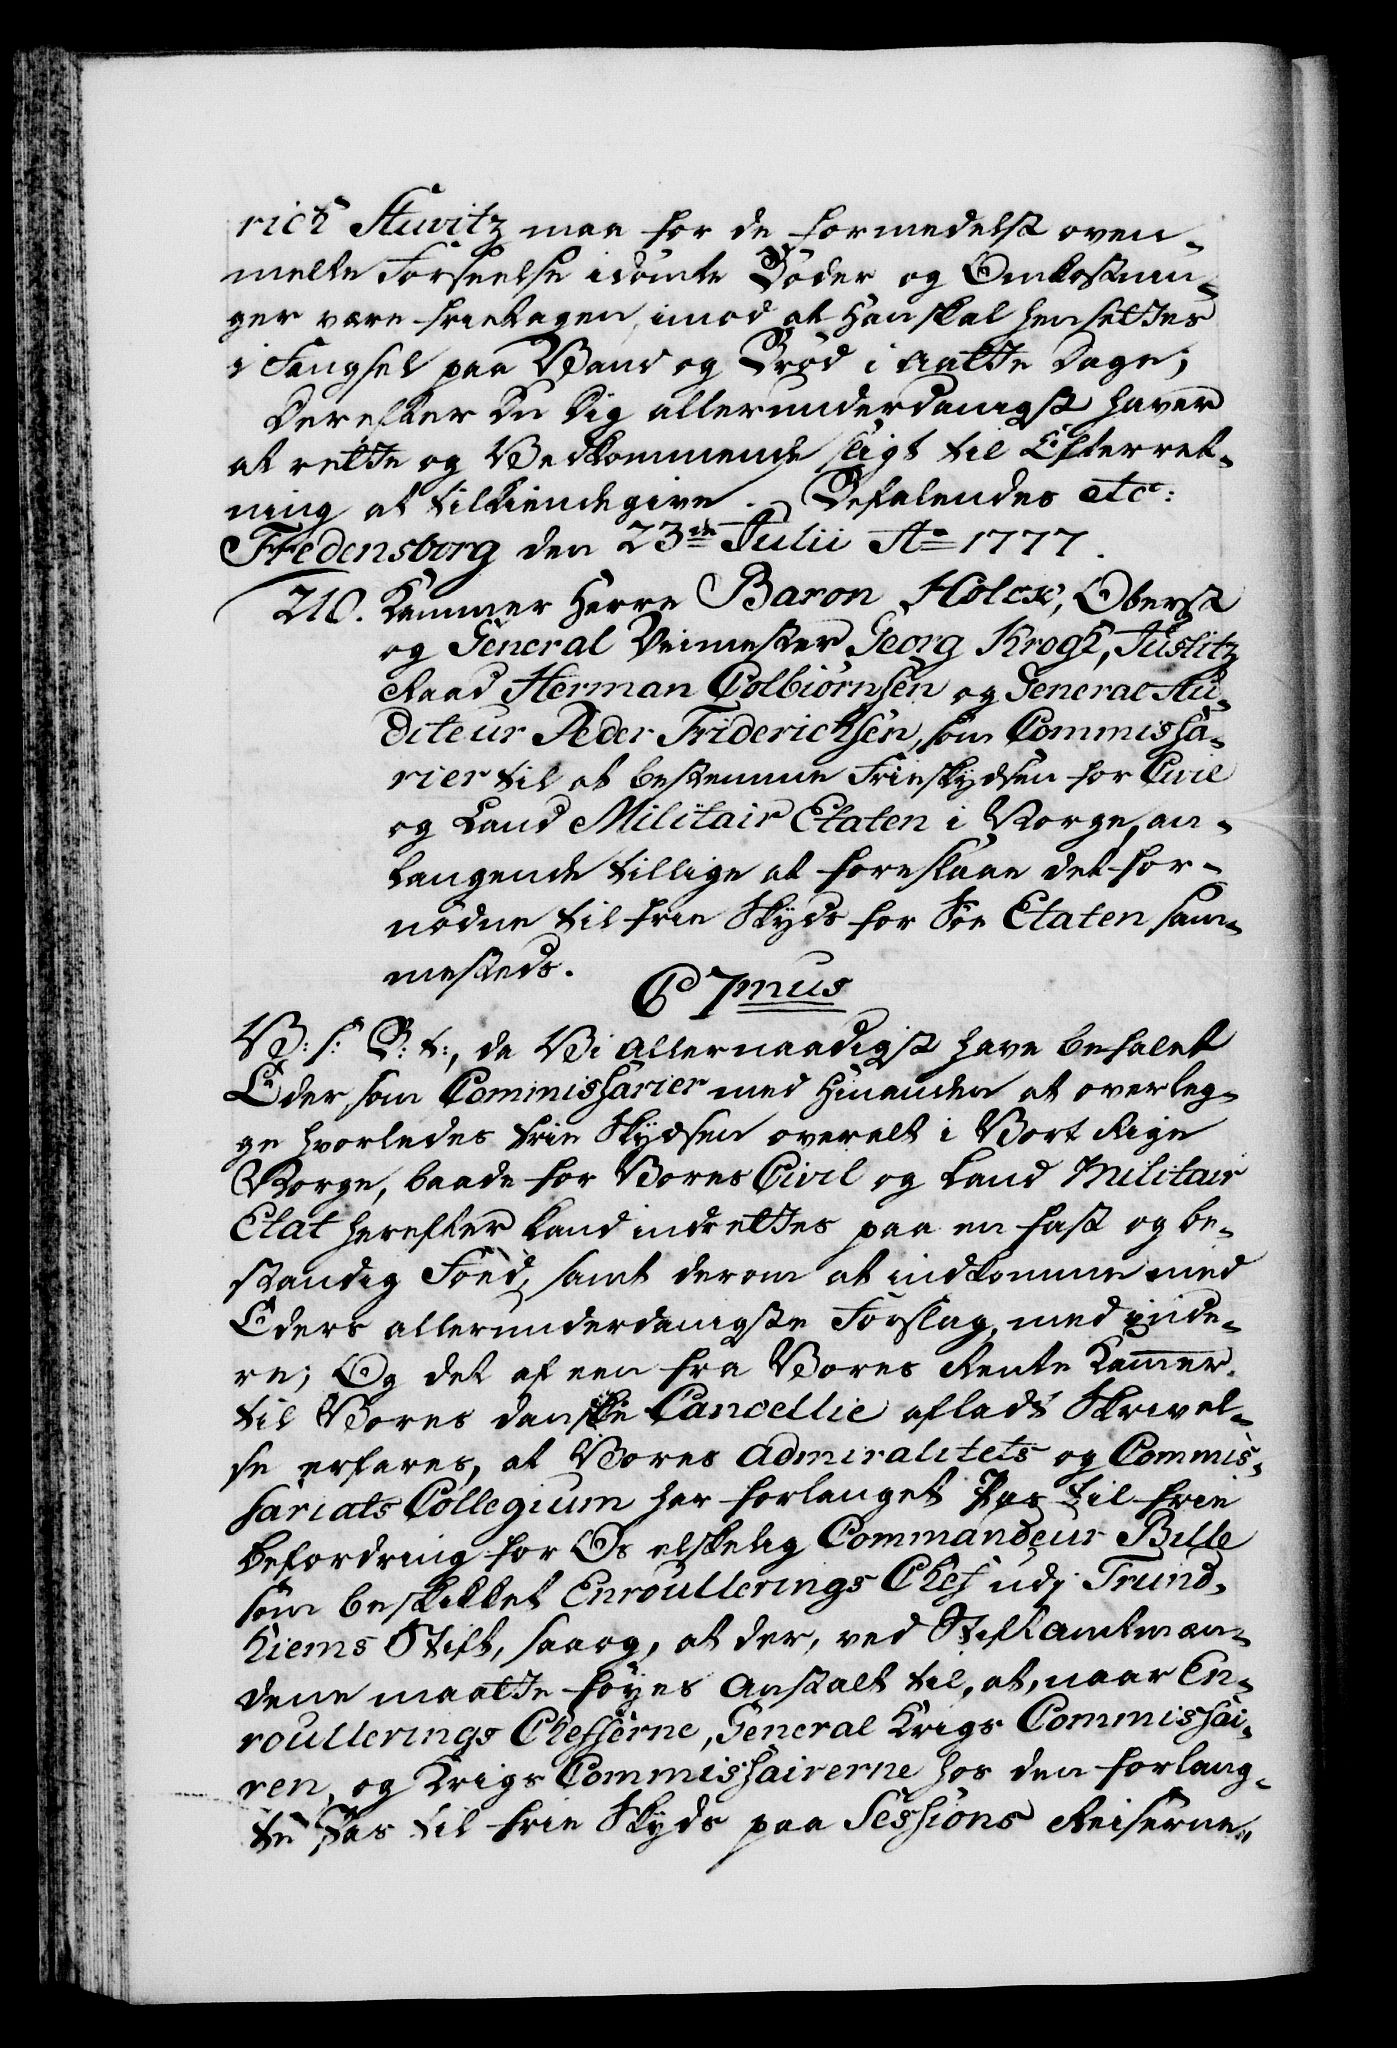 rich Stuvitz maa for de formedelst oven-
melte Forseelse idömte Böder og Omkostnin-
ger være fritagen, imod at Han skal hensettes
i Fængsel paa Vand og Bröd i Aatte Dage;
Derefter Du Dig allerunderdanigst haver
at rette og Vedkommende sligt til Efterret-
ning at tilkiendegive. Befalendes etc:
Fredensborg den 23de Julii Ao 1777.
210. Kammer Herre Baron Holck, Oberst
og General Veimester Georg Krogh, Justitz
Raad Herman Colbiörnsen og General Au-
diteur Peder Friderichsen, som Commissa-
rier til at bestemme Frieskydsen for Civil
og Land Militair Etaten i Norge, an-
langende tillige at foreslaae det for-
nödne til frie Skyds for Söe Etaten sam-
mesteds.
C 7mus
V: S: G: T:, da Vi Allernaadigst have befalet
Eder som Commissarier med Hinanden at overleg-
ge hvorledes frie Skydsen overalt i Vort Rige
Norge, baade for Vores Civil og Land Militair
Etat herefter kand indrettes paa en fast og be-
standig Foed, samt derom at indkomme med
Eders allerunderdanigste Forslag, med vide-
re; Og det af een fra Vores Rente Kammer
til Vores danske Cancellie afladt Skrivel-
se erfares, at Vores Admiralitets og Commis-
sariats Collegium har forlanget Pas til frie
befordring for Os elskelig Commandeur Bille
som beskikket Enroullerings Chef udj Trund-
hiems Stift, saa og, at der, ved Stiftamtmæn-
dene maatte föyes Anstalt til, at, naar En-
roullerings Chefferne, General Krigs Commissai-
ren, og Krigs Commissairerne hos dem forlang-
te Pas til frie Skyds paa Sessions Reiserne,